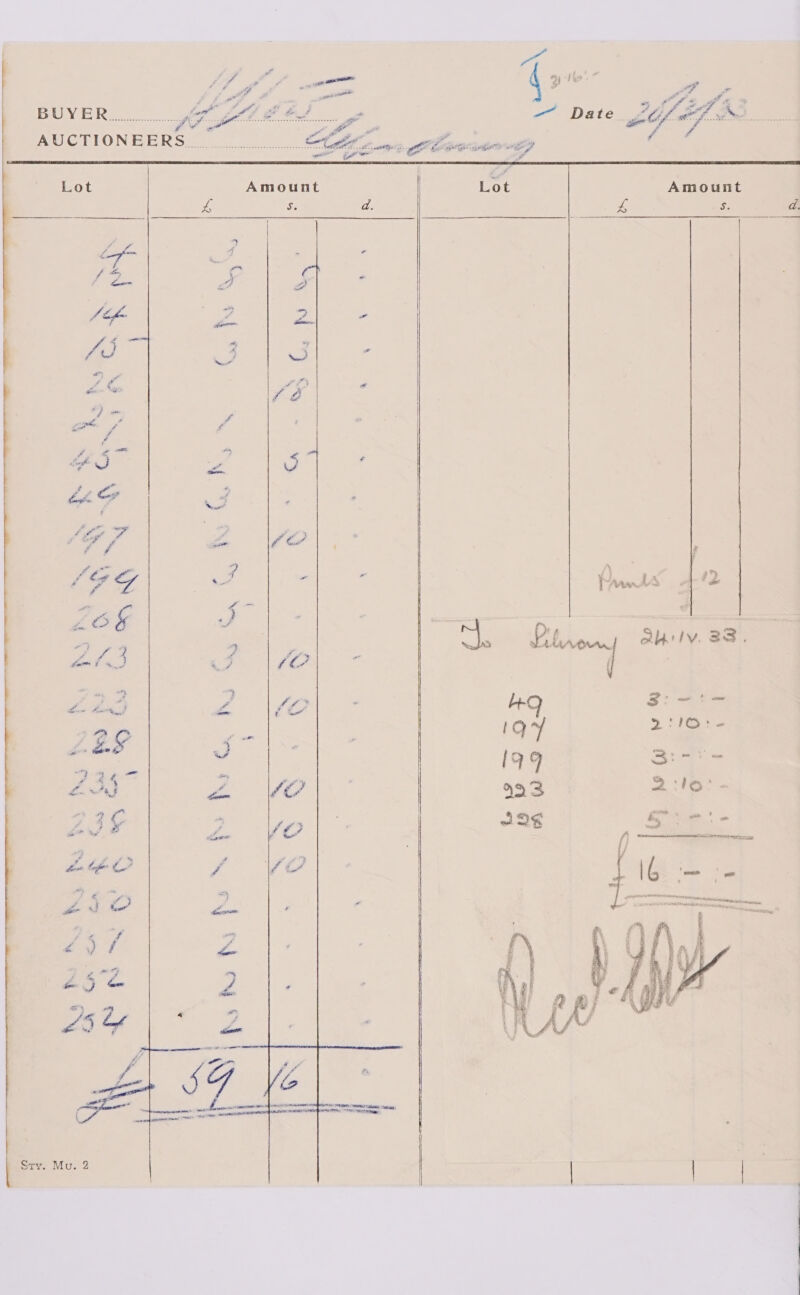 BUYER Date 26/4/33
AUCTIONEERS
Lot Amount Lot Amount
£ s. d. £ s. d.
4 3 - -
12 8 8 -
14 2 2 -
15 3 3 -
26 18 -
27 1 - -
45 2 5 -
49 3 - -
197 2 10 -
199 3 - -
208 5 - -
213 3 10 -
223 2 10 -
228 5 - -
235 2 10
238 2 10 -
240 1 10 -
250 2 - -
251 2 - -
252 2 - -
254 2 - -
£ 59 16 -
Prints £12
To Library 24.IV.33.
49 3:-:-
197 2:10:-
199 3:-:-
223 2:10:-
228 5:-:-
£16:-:-
Recd.
Sty. Mu. 2